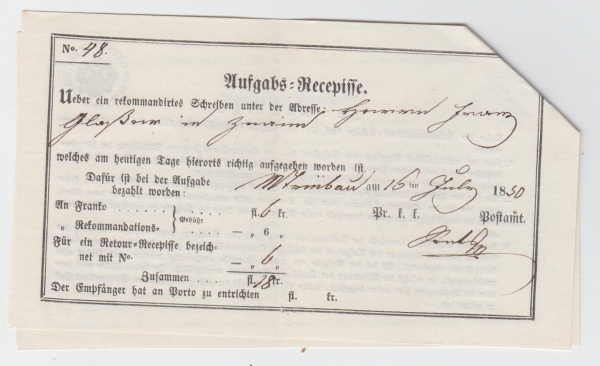 No. 48.
Aufgabs-Recepisse.
Ueber ein rekommandirtes Schreiben unter der Adresse: Herrn Franz
in Znaim
welches am heutigen Tage hierorts richtig aufgegeben worden ist.
Dafür ist bei der Aufgabe
bezahlt worden: MTrübau am 16ten July 1850
An Franko . . . . . . . . . . fl. 6 kr. Pr. k. k. Postamt.
„ Rekommandations- } Gebühr . . . . — „ 6 „
Für ein Retour-Recepisse bezeich-
net mit No. — „ 6 „
Zusammen . . . . fl. 18 kr.
Der Empfänger hat an Porto zu entrichten fl. kr.